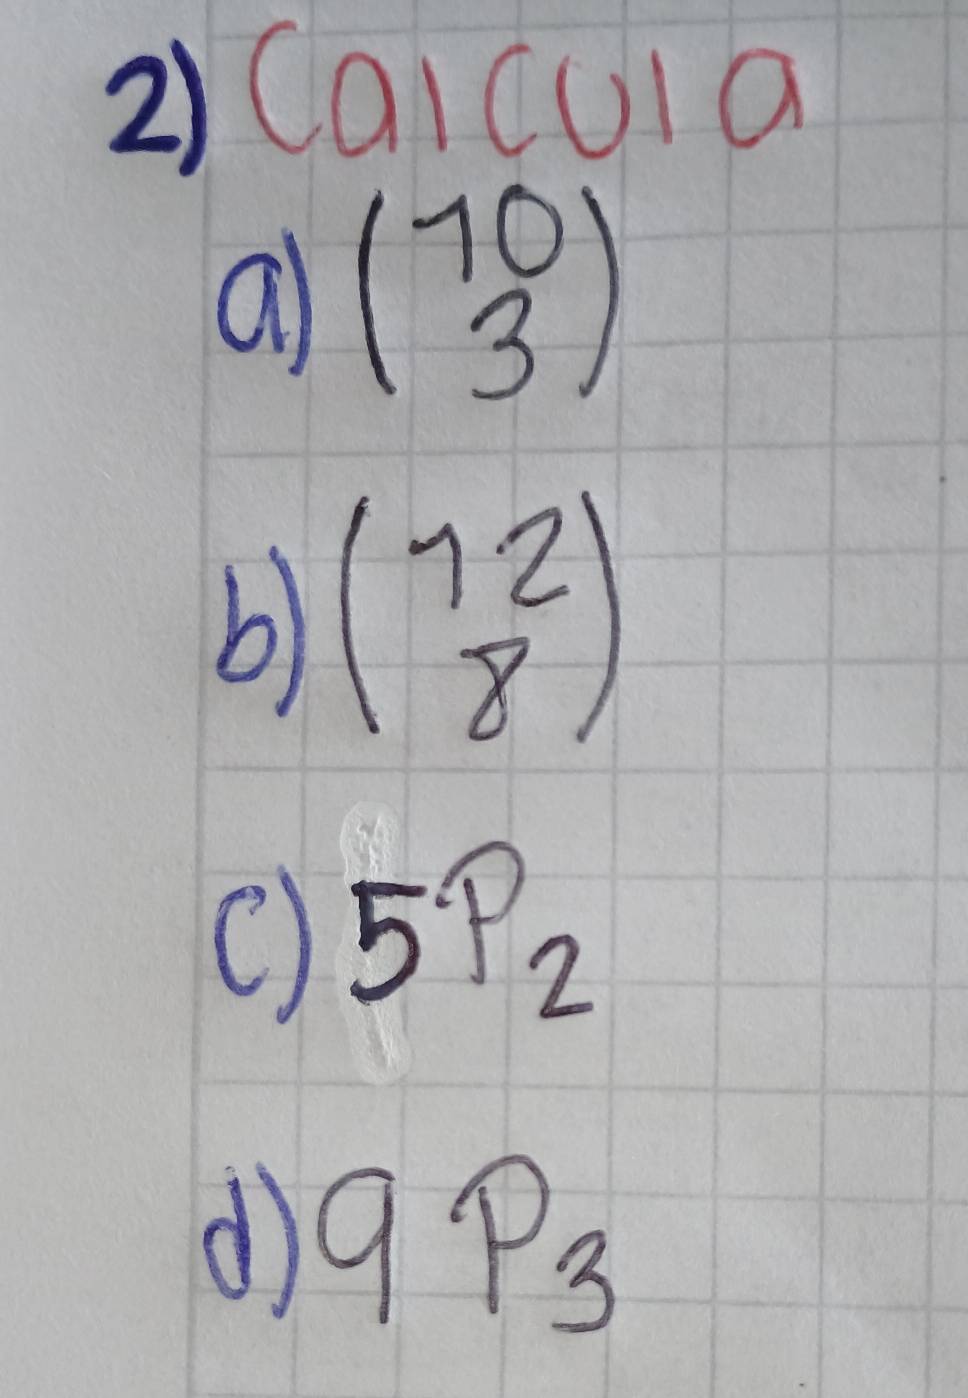 2) Calcula
a) (10
3)
b) (12
8)
c) 5P2
d) 9P3